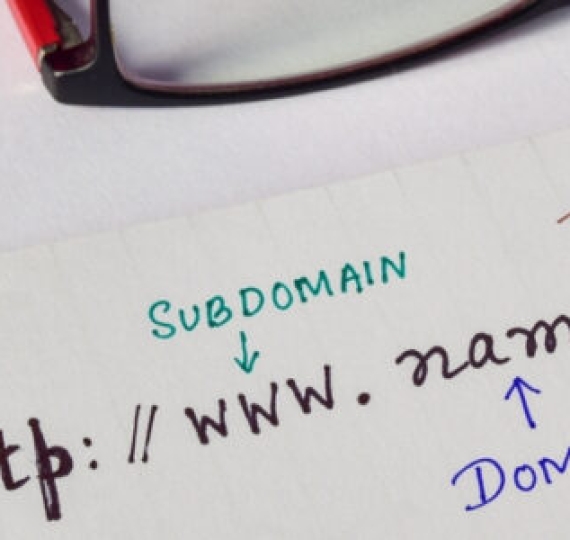 SUBDOMAIN
↓
tp: // www. nam
↑
DOM